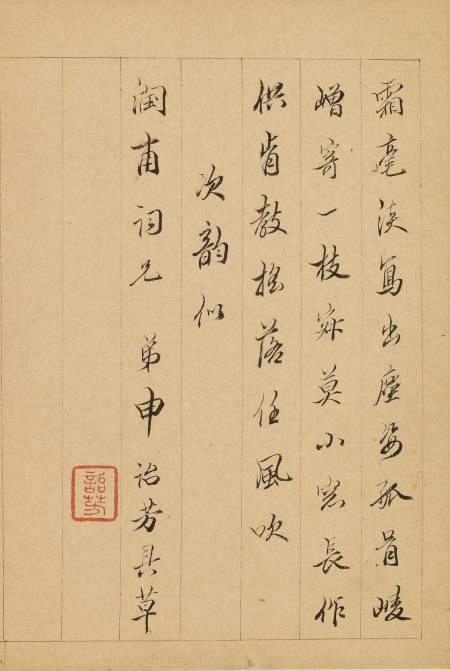 霜毫淡寫出塵姿孤骨崚
嶒寄一枝寂莫小窓長作
供肯教搖落任風吹
次韻似
潤甫詞兄 弟申詒芳具草
詒芳